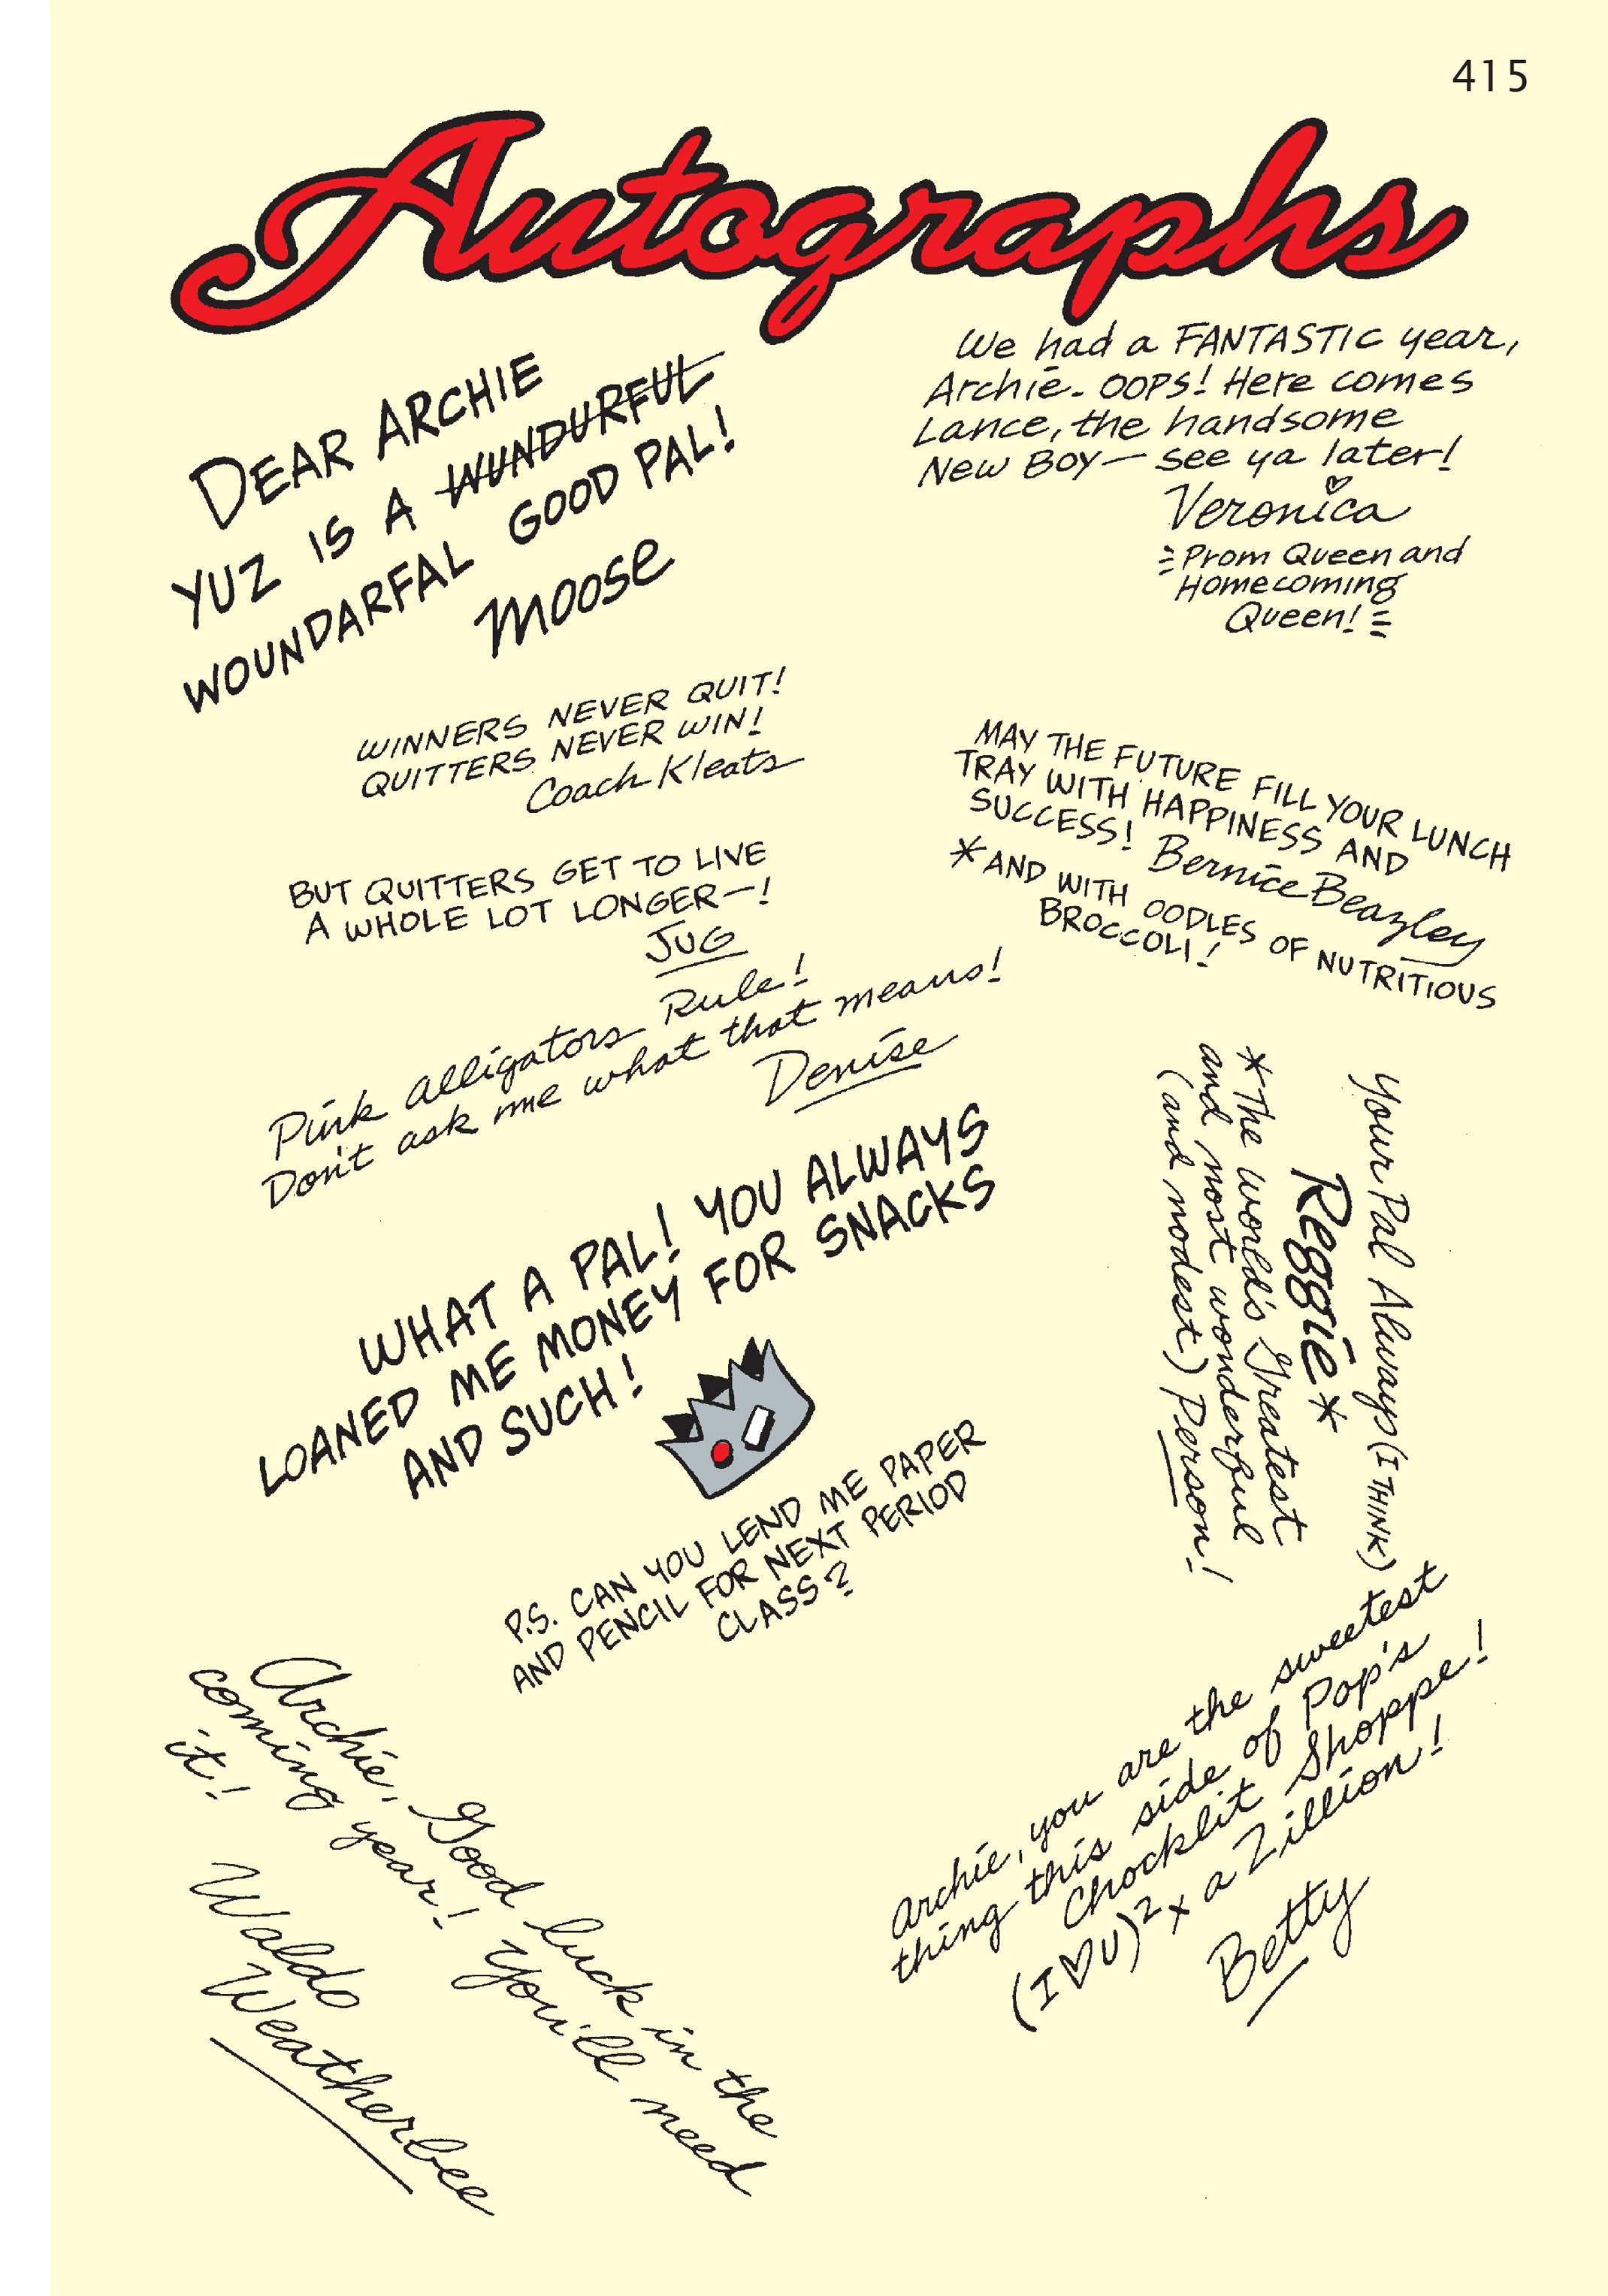 415
Autographs
DEAR ARCHIE
YUZ IS A WUNDURFUL
WOUNDARFAL GOOD PAL!
Moose
We had a FANTASTIC year,
Archie. OOPS! Here comes
Lance, the handsome
New Boy— see ya later!
Veronica
Prom Queen and
Homecoming
Queen!
WINNERS NEVER QUIT!
QUITTERS NEVER WIN!
Coach Kleats
MAY THE FUTURE FILL YOUR LUNCH
TRAY WITH HAPPINESS AND
SUCCESS! Bernice Beazley
*AND WITH OODLES OF NUTRITIOUS
BROCCOLI!
BUT QUITTERS GET TO LIVE
A WHOLE LOT LONGER—!
JUG
Pink alligators Rule!
Don't ask me what that means!
Denise
Your Pal Always (I THINK)
Reggie*
*The world's Greatest
and most wonderful
(and modest) Person!
WHAT A PAL! YOU ALWAYS
LOANED ME MONEY FOR SNACKS
AND SUCH!
P.S. CAN YOU LEND ME PAPER
AND PENCIL FOR NEXT PERIOD
CLASS?
Archie, Good luck in the
coming year! You'll need
it!
Waldo
Weatherbee
Archie, you are the sweetest
thing this side of Pop's
Chocklit Shoppe!
(I♡U)² x a Zillion!
Betty